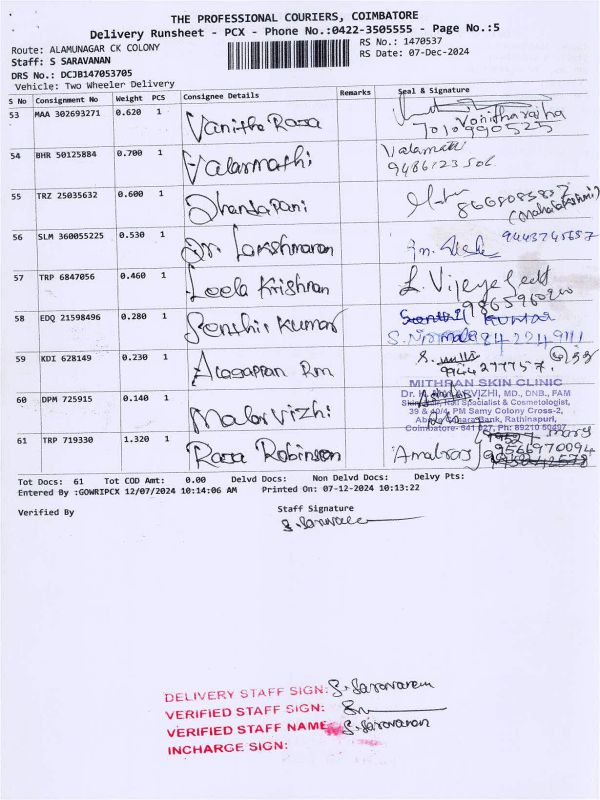 THE PROFESSIONAL COURIERS, COIMBATORE
Delivery Runsheet - PCX - Phone No.:0422-3505555 - Page No.:5
Route: ALAMUNAGAR CK COLONY
RS No.: 1470537
Staff: S SARAVANAN
RS Date: 07-Dec-2024
DRS No.: DCJB147053705
Vehicle: Two Wheeler Delivery
S No Consignment No Weight PCS Consignee Details Remarks Seal & Signature
53 MAA 302693271 0.620 1 Vanitha Rasa Vanitharajha
7010990525
54 BHR 50125884 0.700 1 Valarmathi Valarmathi
9486123506
55 TRZ 25035632 0.600 1 Dhandapani 8668085837
(Mahalakshmi)
56 SLM 360055225 0.530 1 Dr. Lakshmanan 9443745657
57 TRP 6847056 0.460 1 Leela Krishnan L. Vijaya
58 EDQ 21598496 0.280 1 Senthil Kumar Senthil Kumar
S. Nirmala 9842249111
59 KDI 628149 0.230 1 Alagappan Rm S.
9944277757
60 DPM 725915 0.140 1 Malar Vizhi
MITHRAN SKIN CLINIC
VIZHI, MD., DNB., FAM
Specialist & Cosmetologist,
39 & 40/4, PM Samy Colony Cross-2,
Bank, Rathinapuri,
Coimbatore- 641 027, Ph: 89210 50497
61 TRP 719330 1.320 1 Rasa Robinson Amalraj
9566970094
Tot Docs: 61 Tot COD Amt: 0.00 Delvd Docs: Non Delvd Docs: Delvy Pts:
Entered By :GOWRIPCX 12/07/2024 10:14:06 AM Printed On: 07-12-2024 10:13:22
Verified By Staff Signature
S. Saravanan
DELIVERY STAFF SIGN: S. Saravanan
VERIFIED STAFF SIGN:
VERIFIED STAFF NAME S. Saravanan
INCHARGE SIGN: